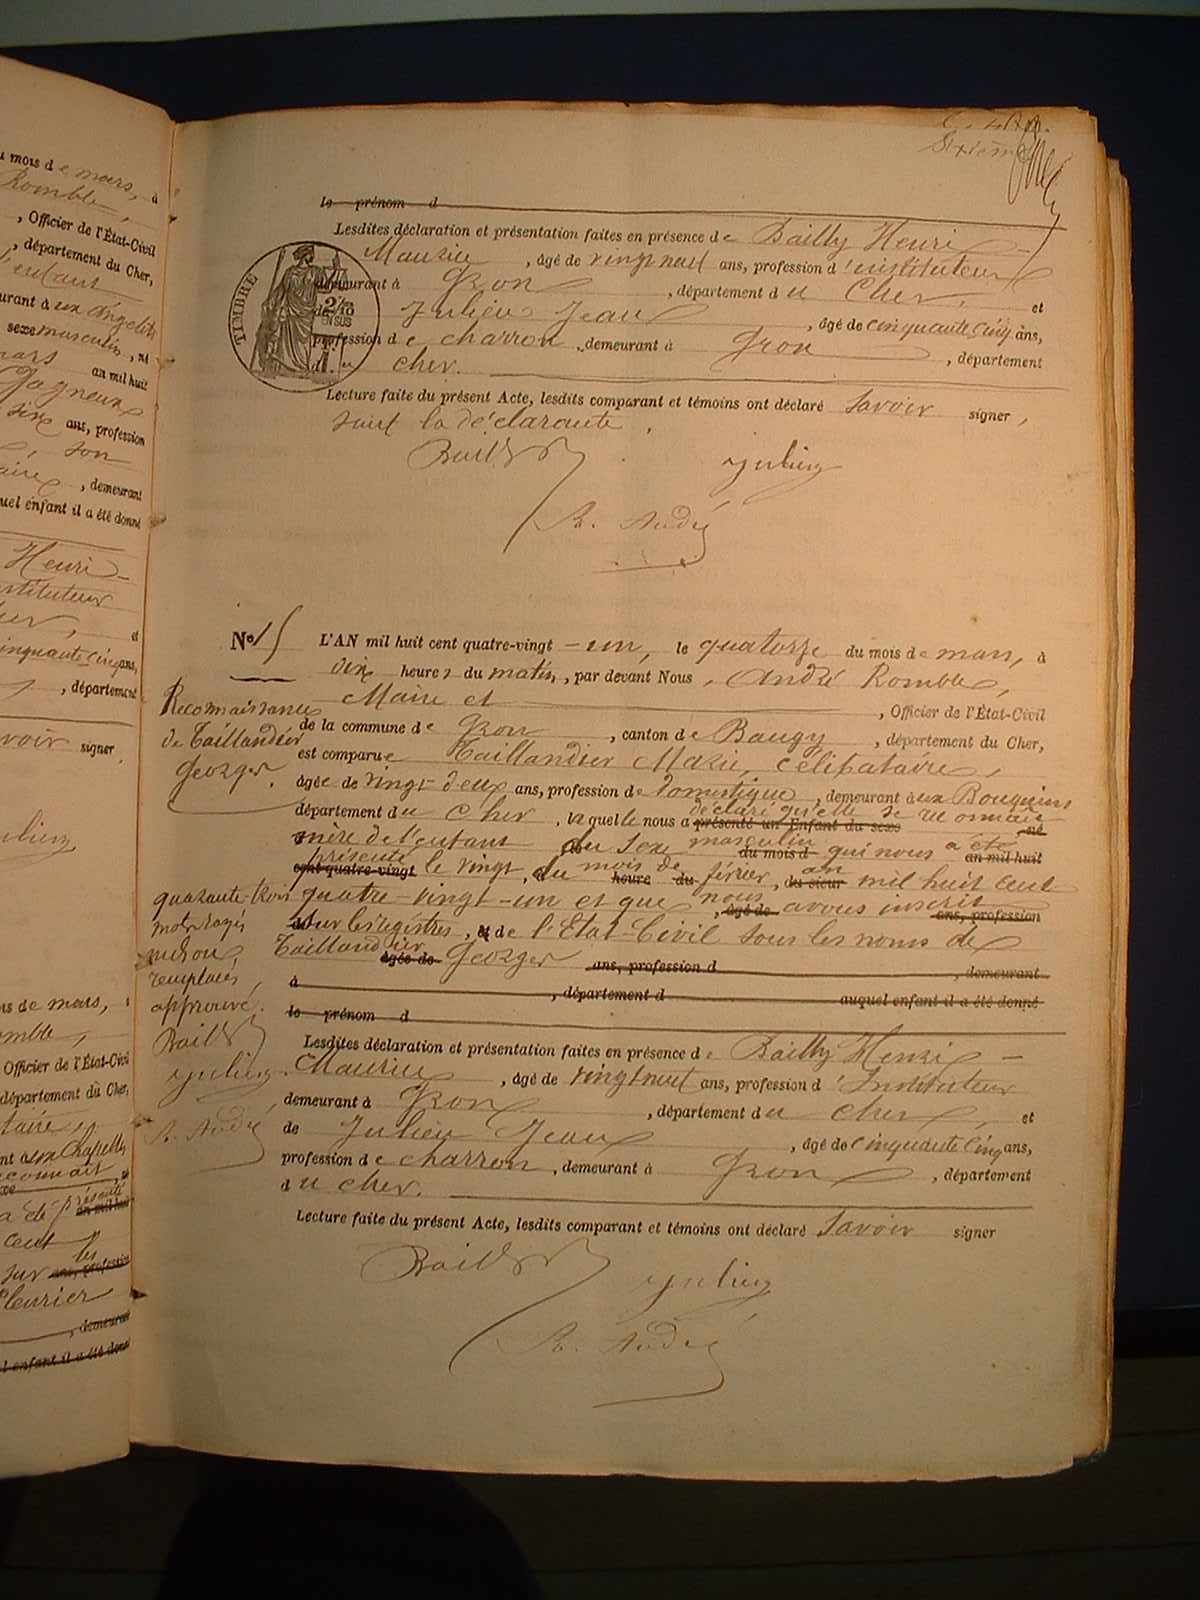 u mois de mars, à
Romble,
, Officier de l'État-Civil
, département du Cher,
l'enfant
urant à aux Angelets
sexe masculin, né
mars an mil huit
Gagneux
six ans, profession
son
, demeurant
uel enfant il a été donné
Henri
instituteur
, et
cinquante cinq ans,
, département
avoir signer
julien
is de mars, à
omble,
Officier de l'État-Civil
département du Cher,
taire,
nt à aux Chapelles
econnait
a été présenté
an mil huit
cent
sur les ans, profession
fleurier
, demeurant
l enfant il a été donné
Sixième
le prénom d
Lesdites déclaration et présentation faites en présence de Bailly Henri
Maurice, âgé de vingt neuf ans, profession d'instituteur
demeurant à Gron, département du Cher, et
de Julien Jean, âgé de cinquante cinq ans,
profession de charron, demeurant à Gron, département
du cher.
TIMBRE
Lecture faite du présent Acte, lesdits comparant et témoins ont déclaré savoir signer,
sauf la déclarante.
Bailly julien
R. André
No 15 L'AN mil huit cent quatre-vingt-un, le quatorze du mois de mars, à
dix heures du matin, par devant Nous, André Romble,
Maire et, Officier de l'État-Civil
de la commune de Gron, canton de Baugy, département du Cher,
est comparue Taillandier Marie, célibataire,
âgée de vingt-deux ans, profession de domestique, demeurant à aux Bouquins
département du Cher, laquelle nous a déclaré qu'elle se reconnait
présenté un Enfant du sexe né
mère de l'enfant du sexe masculin du mois d qui nous a été an mil huit
présenté cent quatre-vingt le vingt, du mois de heure du février, du sieur an mil huit cent
quatre-vingt-un et que nous, âgé de avons inscrit ans, profession
sur les registres, de l'Etat-Civil sous les noms de
Taillandier âgée de Georges ans, profession d, demeurant
à, département d auquel enfant il a été donné
le prénom d
Reconnaissance
de Taillandier
Georges.
quarante-trois
mots rayés
nuls ou
remplacés,
approuvé.
Bailly
julien
R. André
Lesdites déclaration et présentation faites en présence de Bailly Henri-
Maurice, âgé de vingt neuf ans, profession d'Instituteur
demeurant à Gron, département du cher, et
de Julien Jean, âgé de cinquante cinq ans,
profession de charron, demeurant à Gron, département
du cher.
Lecture faite du présent Acte, lesdits comparant et témoins ont déclaré savoir signer
Bailly julien
R. André